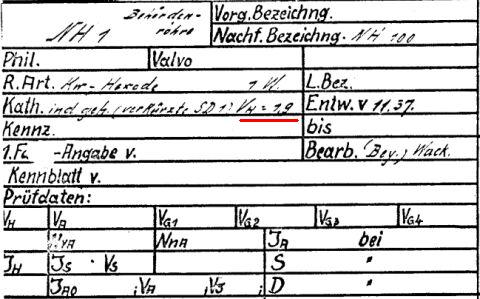 NH 1 Behörden-röhre Vorg. Bezeichng.
Nachf. Bezeichng. NH 100
Phil. Valvo
R. Art. Kw-Hexode 1 W. L. Bez.
Kath. ind. geh. (verkürzte SD1) VH = 1,9 Entw. v 11.37.
Kennz. bis
1. Fu -Angabe v. Bearb. (Bey.) Wack.
Kennblatt v.
Prüfdaten:
VH VA VG1 VG2 VG3 VG4
VA NNA JA bei
JH JS · VS S "
JAO ; VA ; VJ ; D "